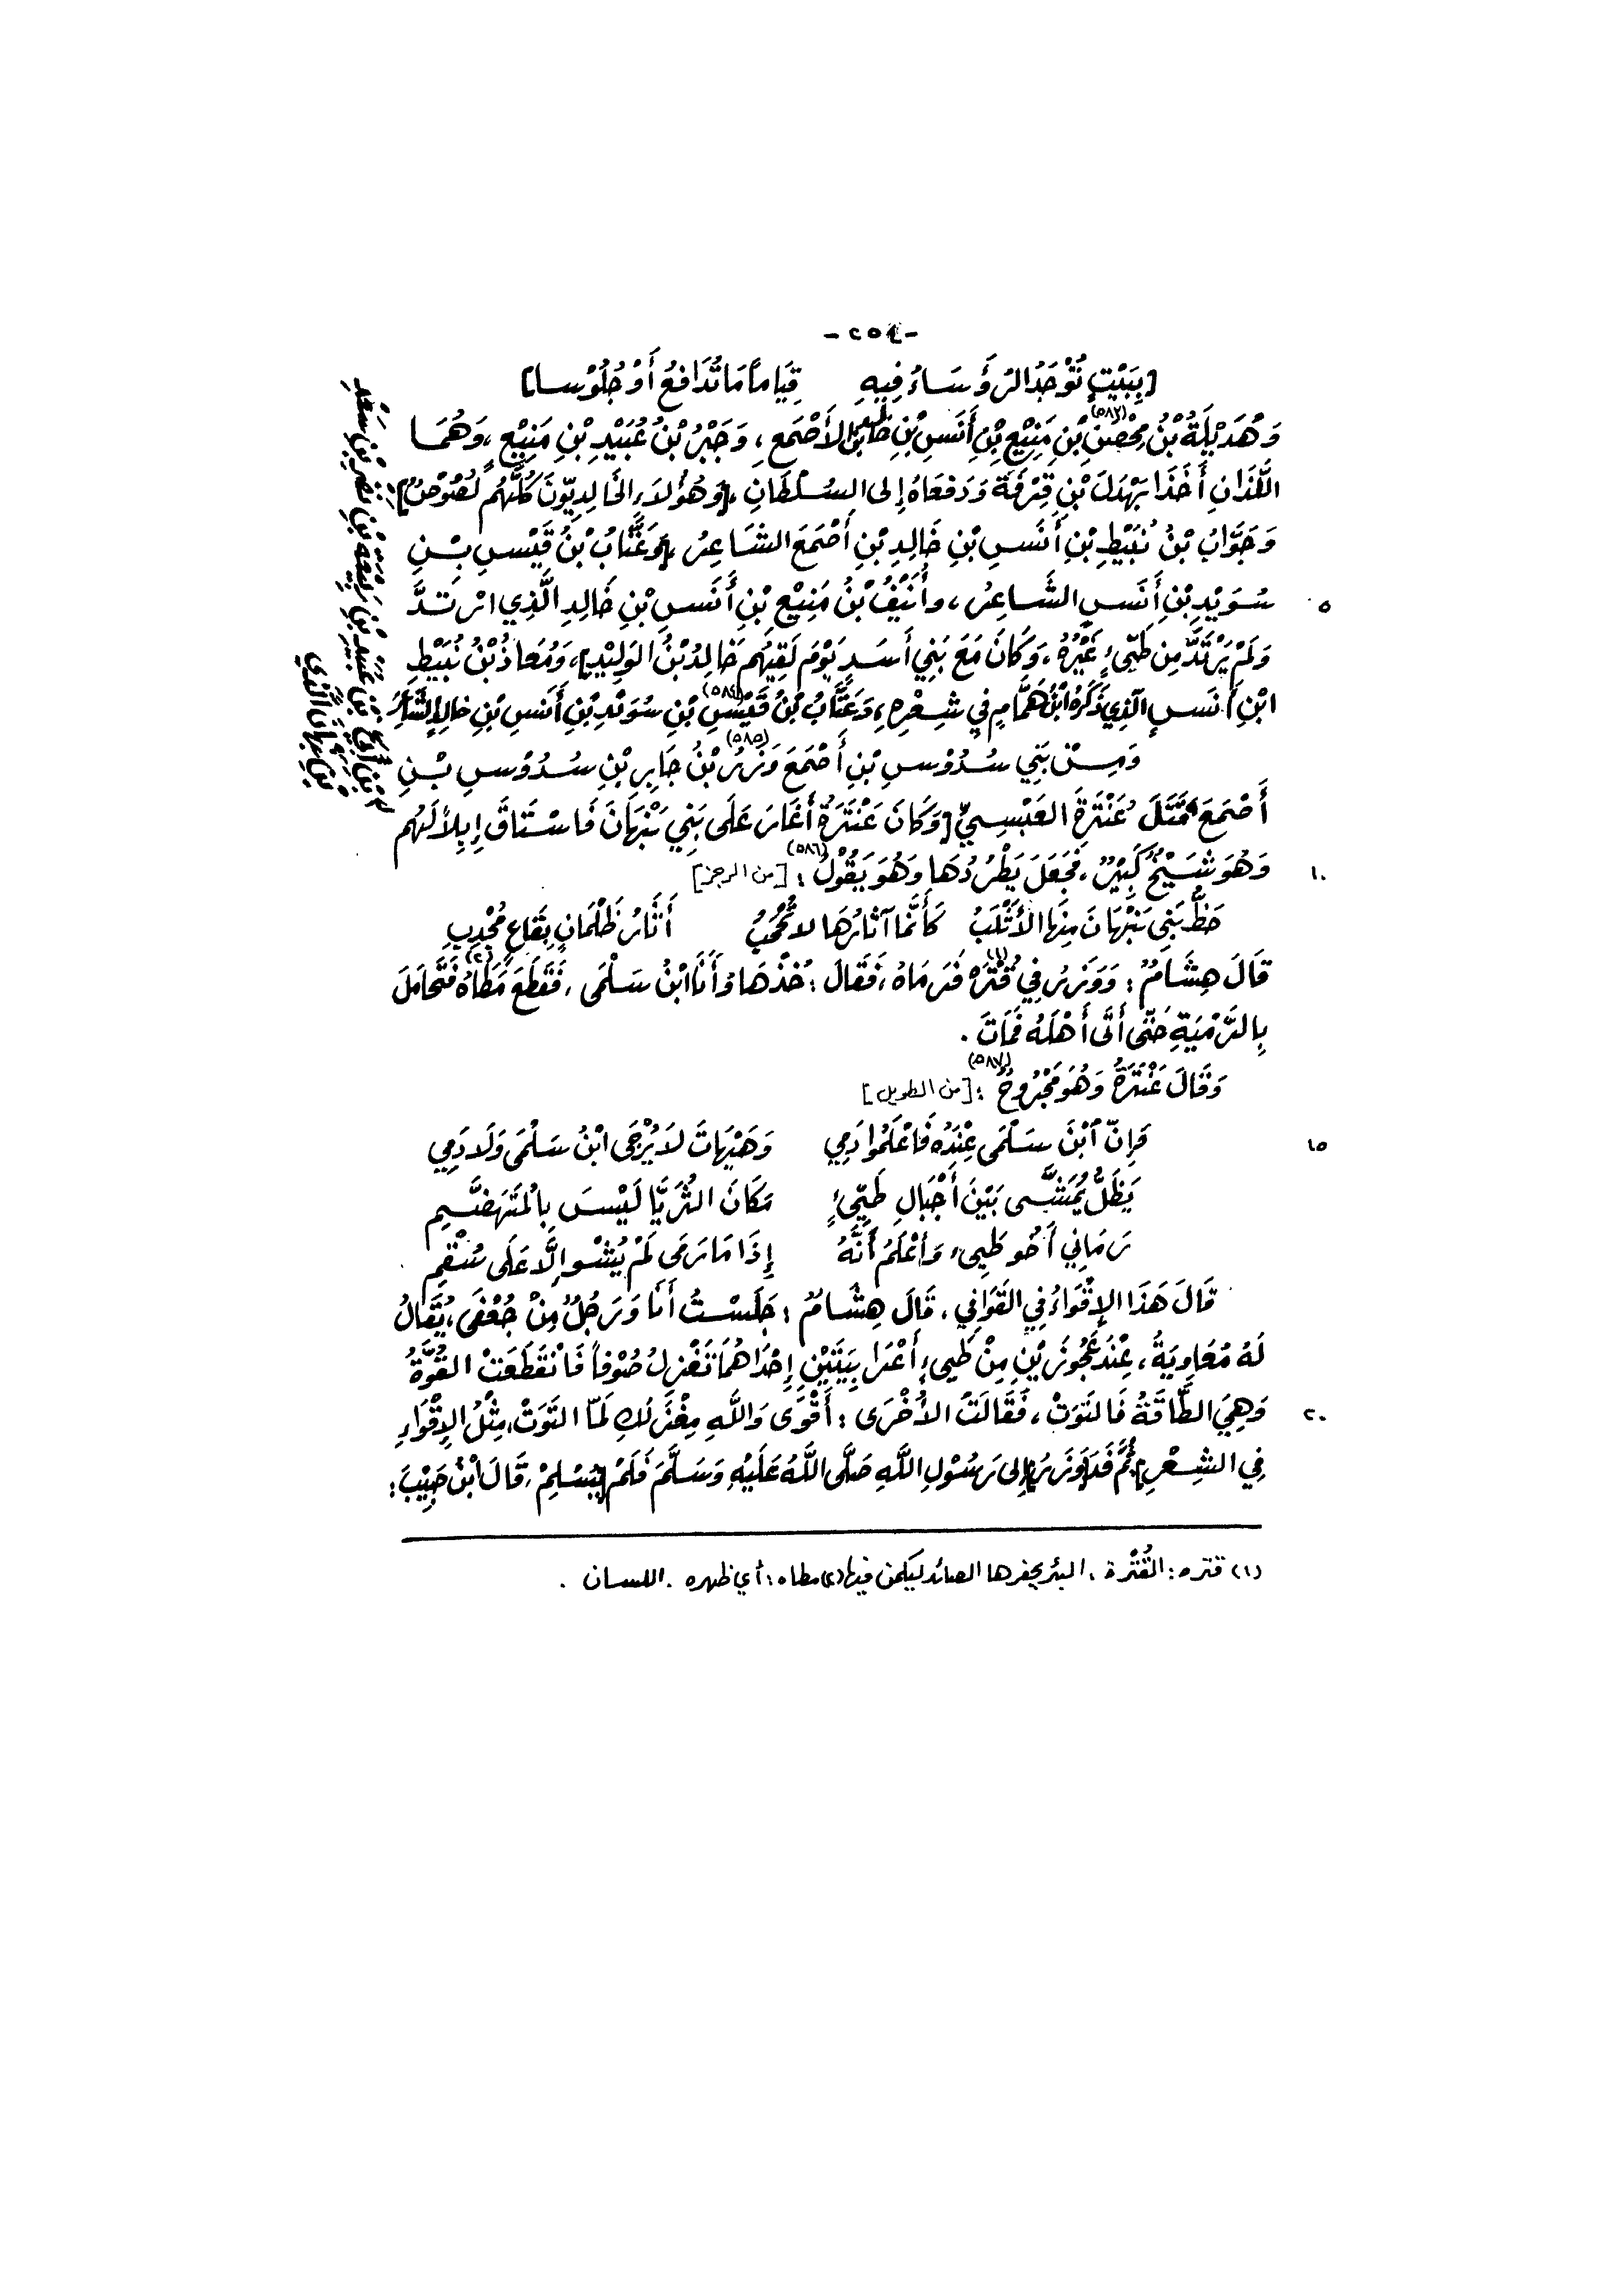 -٢٥٤-
[بِبَيْتٍ تُوْجَدُ الرُّؤَسَاءُ فِيهِ قِيَاماً مَا تُدَافِعُ أَوْ جُلُوْسا]
وَهُدَيْلَةُ بْنُ مِحْصَنِ(٥٨٣) بْنِ مَنِيْعِ بْنِ أَنَسِ بْنِ خَالِدِ بْنِ الأَصْمَعِ، وَجَبْرُ بْنُ عُبَيْدِ بْنِ مَنِيْعٍ، وَهُمَا
اللَّذَانِ أَخَذَا بَهْدَلَ بْنَ قِرْفَةَ وَدَفَعَاهُ إلى السُلْطَانِ، [وَهُؤلاَءِ الخَالِدِيّونَ كُلُّهُم لُصُوْصٌ]،
وَجَوَّابُ بْنُ نُبَيْطِ بْنِ أَنَسِ بْنِ خَالِدِ بْنِ أَصْمَعَ الشَاعِرُ، [وَعَتَّابُ بْنُ قَيْسِ بْنِ
٥ سُوَيْدِ بْنِ أَنَسٍ الشَّاعِرُ، وأُنَيْفُ بْنُ مَنِيْعِ بْنِ أَنَسِ بْنِ خَالِدِ الَّذِي ارْتَدَّ
وَلَمْ يَرْتَدَّ مِن طَيِّىءٍ غَيْرُهُ، وَكَانَ مَعَ بَنِي أَسَدٍ يَوْمَ لَقِيَهُم خَالِدُ بْنُ الوَلِيْدِ]، وَمُعَاذُ بْنُ نُبَيْطِ
ابْنِ أَنَسٍ الَّذِي ذَكَرَهُ ابْنُ هَمَّامٍ فِي شِعْرِهِ، وَعَتَّابُ بْنُ قَيْسِ(٥٨٤) بْنِ سُوَيْدِ بْنِ أَنَسِ بْنِ خَالِدٍ الشَّاعِرُ
وَمِنْ بَنِي سُدُوْسِ بْنِ أَصْمَعَ وَزَرُ(٥٨٥) بْنُ جَابِرِ بْنِ سُدُوْسِ بْنِ
أَصْمَعَ قَتَلَ عَنْتَرَةَ العَبْسِيَّ [وَكَانَ عَنْتَرَةُ أَغَارَ عَلَى بَنِي نَبْهَانَ فَاسْتَاقَ إِبِلاً لَهُم
١٠ وَهُوَ شَيْخٌ كَبِيْرٌ، فَجَعَلَ يَطْرُدُهَا وَهُوَ يَقُوْلُ(٥٨٦): [من الرجز]
حَظُّ بَنِي نَبْهَانَ مِنْهَا الأَثْلَبُ كَأَنَّمَا آثَارُهَا لا تُحْجَبُ أَثَارُ ظَلْمَانٍ بِقَاعٍ مُجْدِبِ
قَالَ هِشَامٌ: وَوَزَرُ فِي قُتْرَهْ(١) فَرَمَاهُ، فَقَالَ: خُذْهَا وَأَنَا ابْنُ سَلْمَى، فَقَطَعَ مَطَاهُ(٢) فَتَحَامَلَ
بِالرَّمْيَةِ حَتّى أَتَى أَهْلَهُ فَمَاتَ.
وَقَالَ عَنْتَرَةُ وَهُوَ مَجْرُوحٌ(٥٨٧): [من الطويل]
١٥ وَإِنّ ابْنَ سَلْمَى عِنْدَهُ فَاعْلَمُوا دَمِي وَهَيْهَاتَ لاَ يُرْجَى ابْنُ سَلْمَى وَلاَ دَمِي
يَظَلُّ يُمَشَّى بَيْنَ أَجْبَالِ طَيِّىءٍ مَكَانَ الثُّرَيَّا لَيْسَ بِالْمُتَهَضَّمِ
رَمَانِي أَخُو طَيىء وَأَعْلَمُ أَنَّهُ إِذَا مَا رَمَى لَمْ يُشْو إلَّا عَلَى سُقْمِ
قَالَ هَذَا الإقْوَاءُ فِي القَوَافِي، قَالَ هِشَامٌ: جَلَسْتُ أَنَا وَرَجُلٌ مِنْ جُعْفَى، يُقَالُ
لَهُ مُعَاوِيَةُ، عِنْدَ عَجُوزَيْنِ مِنْ طَيىءٍ أَعْرَابِيَتَيْنِ إحْدَاهُمَا تَغْزِلُ صُوْفاً فَانْقَطَعَتْ القُوَّةُ
٢٠ وَهِيَ الطَّاقَةُ فَالتَوَتْ، فَقَالَتْ الأُخْرَى: أَقْوَى وَاللَّهِ مِغْزَلُكِ لَمّا التَوَتْ، مِثْلُ الإقْوَاءِ
فِي الشِعْرِ] ثُمَّ وَفَدَ [وَزَرُ] إلى رَسُوْلِ اللَّهِ صَلَّى اللَّهُ عَلَيْهِ وَسَلَّمَ فَلَمْ [يُسْلِمْ، قَالَ ابْنُ حَبِيْبَ:
(١) قتره: القُتْرة، البئر يحفرها الصائد ليكمن فيها (٢) مطاه: أي ظهره. اللسان.